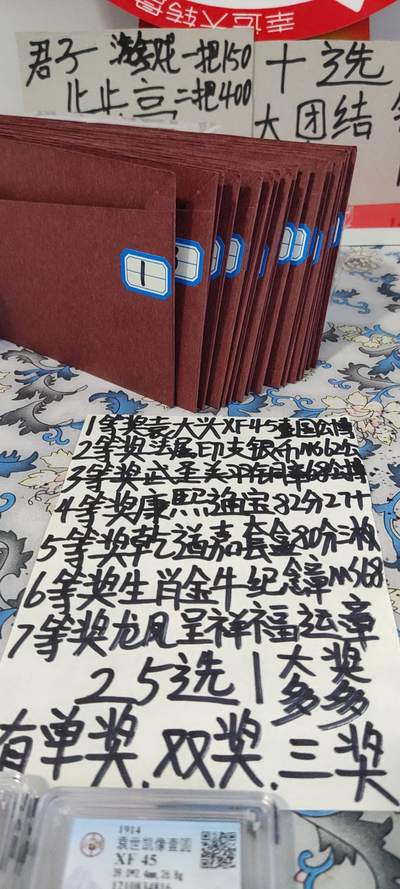 幸运大转盘
君子 游戏一把150
止步 二把400
十选
大团结
1
1等奖袁大头XF45壹圆公博
2等奖法属印支银币MS62公
3等奖武圣关羽纪念章68公博
4等奖康熙通宝82分27十
5等奖乾道嘉套盒80分三枚
6等奖生肖金牛纪念章MS68
7等奖龙凤呈祥福运章
25选1大奖多多
有单奖.双奖.三奖
1914
袁世凯像壹圆
XF 45
39.0*2.4mm,26.8g
1210834816